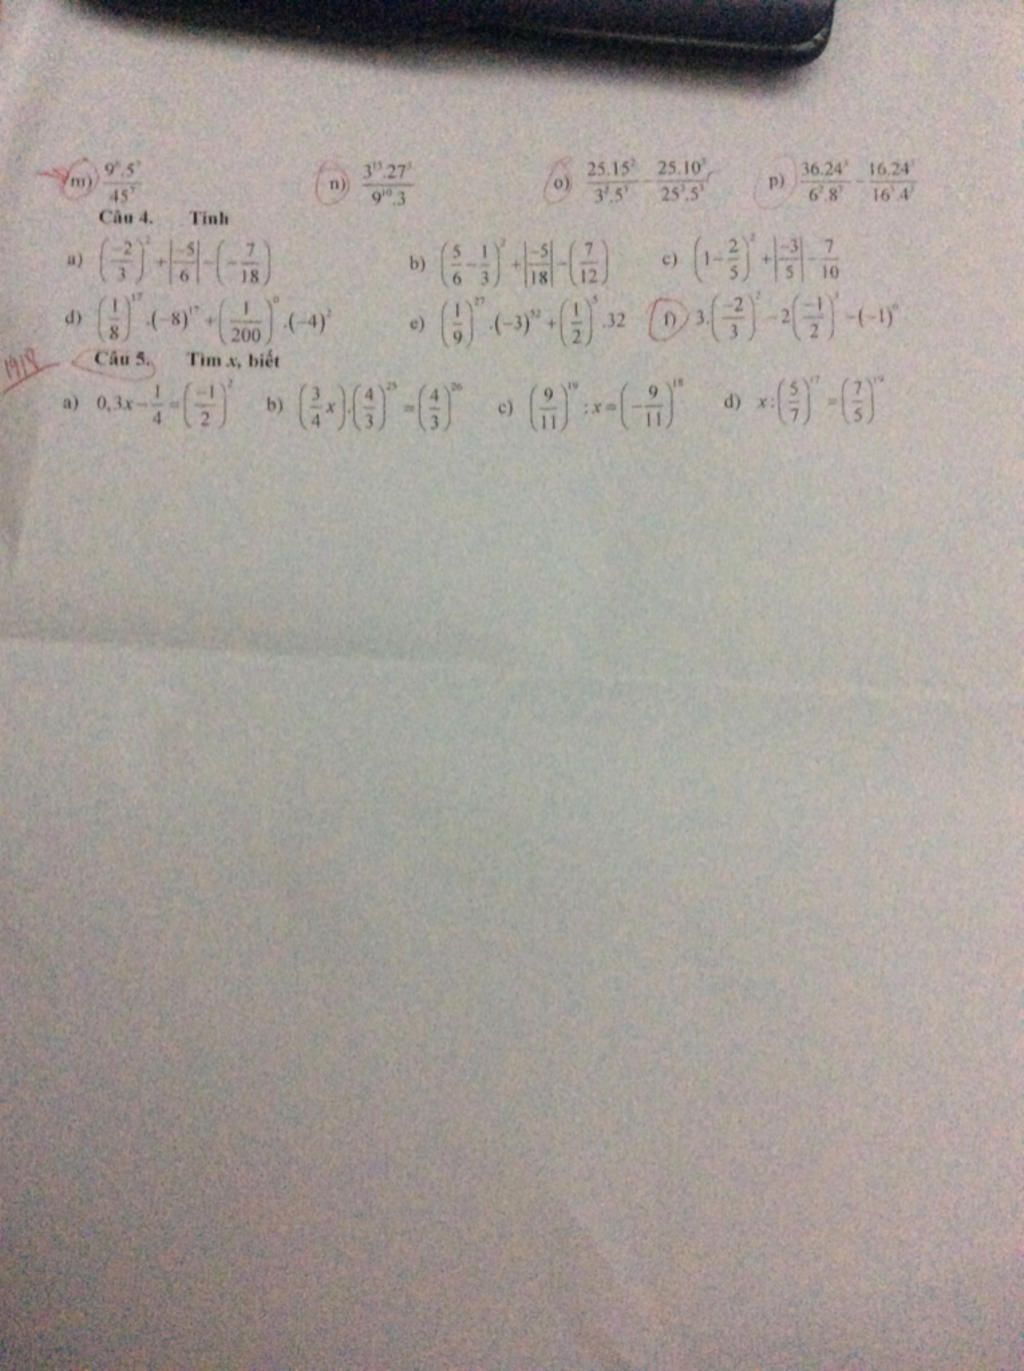 m) 9⁶.5⁷/45⁷ n) 3¹⁵.27³/9¹⁰.3 o) 25.15²/3².5³ - 25.10³/25³.5³ p) 36.24³/6².8³ - 16.24³/16³.4²
Câu 4. Tính
a) (-2/3)² + |-5/6| - (-7/18) b) (5/6 - 1/3)² + |-5/18| - (7/12) c) (1 - 2/5)² + |-3/5| - 7/10
d) (1/8)¹⁷.(-8)¹⁷ + (1/200)⁰.(-4)² e) (1/9)²⁷.(-3)⁵² + (1/2)⁵.32 f) 3.(-2/3)² - 2(-1/2)³ - (-1)⁰
1918 Câu 5. Tìm x, biết
a) 0,3x - 1/4 = (-1/2)² b) (3/4 x).(4/3)²⁵ = (4/3)²⁶ c) (9/11)¹⁹ : x = (-9/11)¹⁸ d) x : (5/7)¹⁷ = (7/5)¹⁹